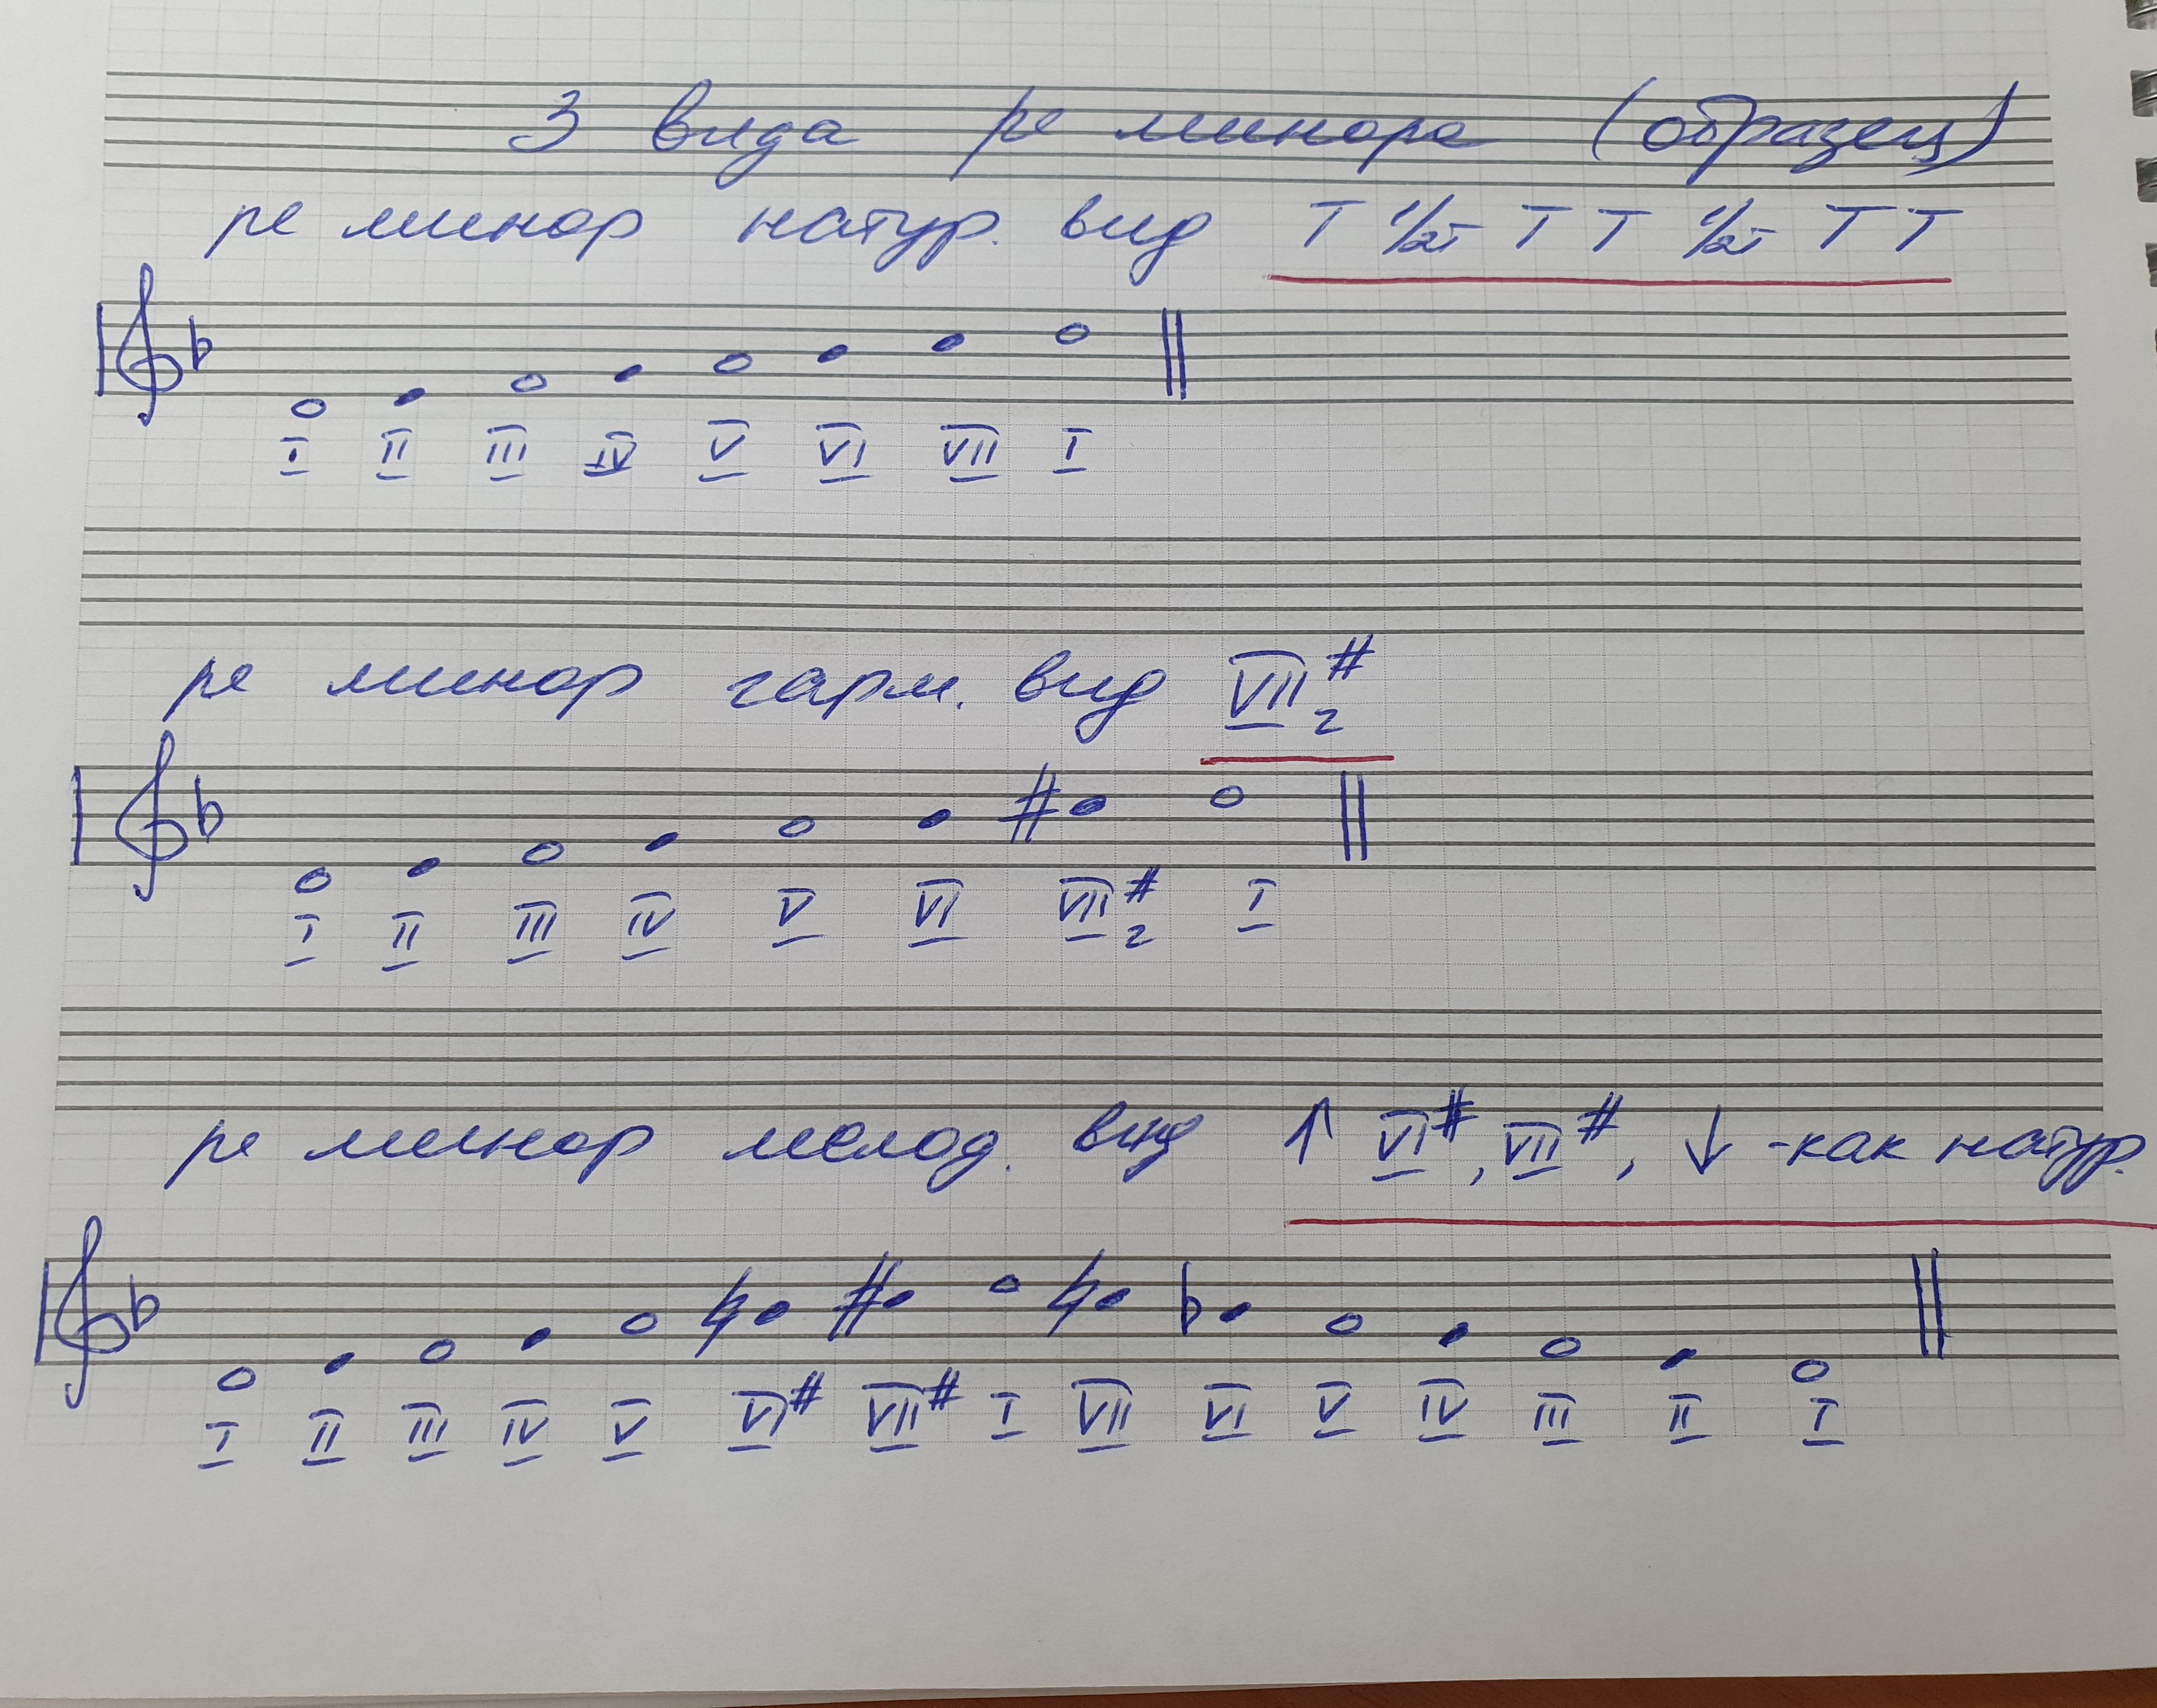 3 вида ре минора (образец)
ре минор натур. вид Т 1/2т Т Т 1/2т Т Т
I II III IV V VI VII I
ре минор гарм. вид VII#г
I II III IV V VI VII#г I
ре минор мелод. вид ↑ VI#, VII#, ↓ -как натур.
I II III IV V VI# VII# I VII VI V IV III II I